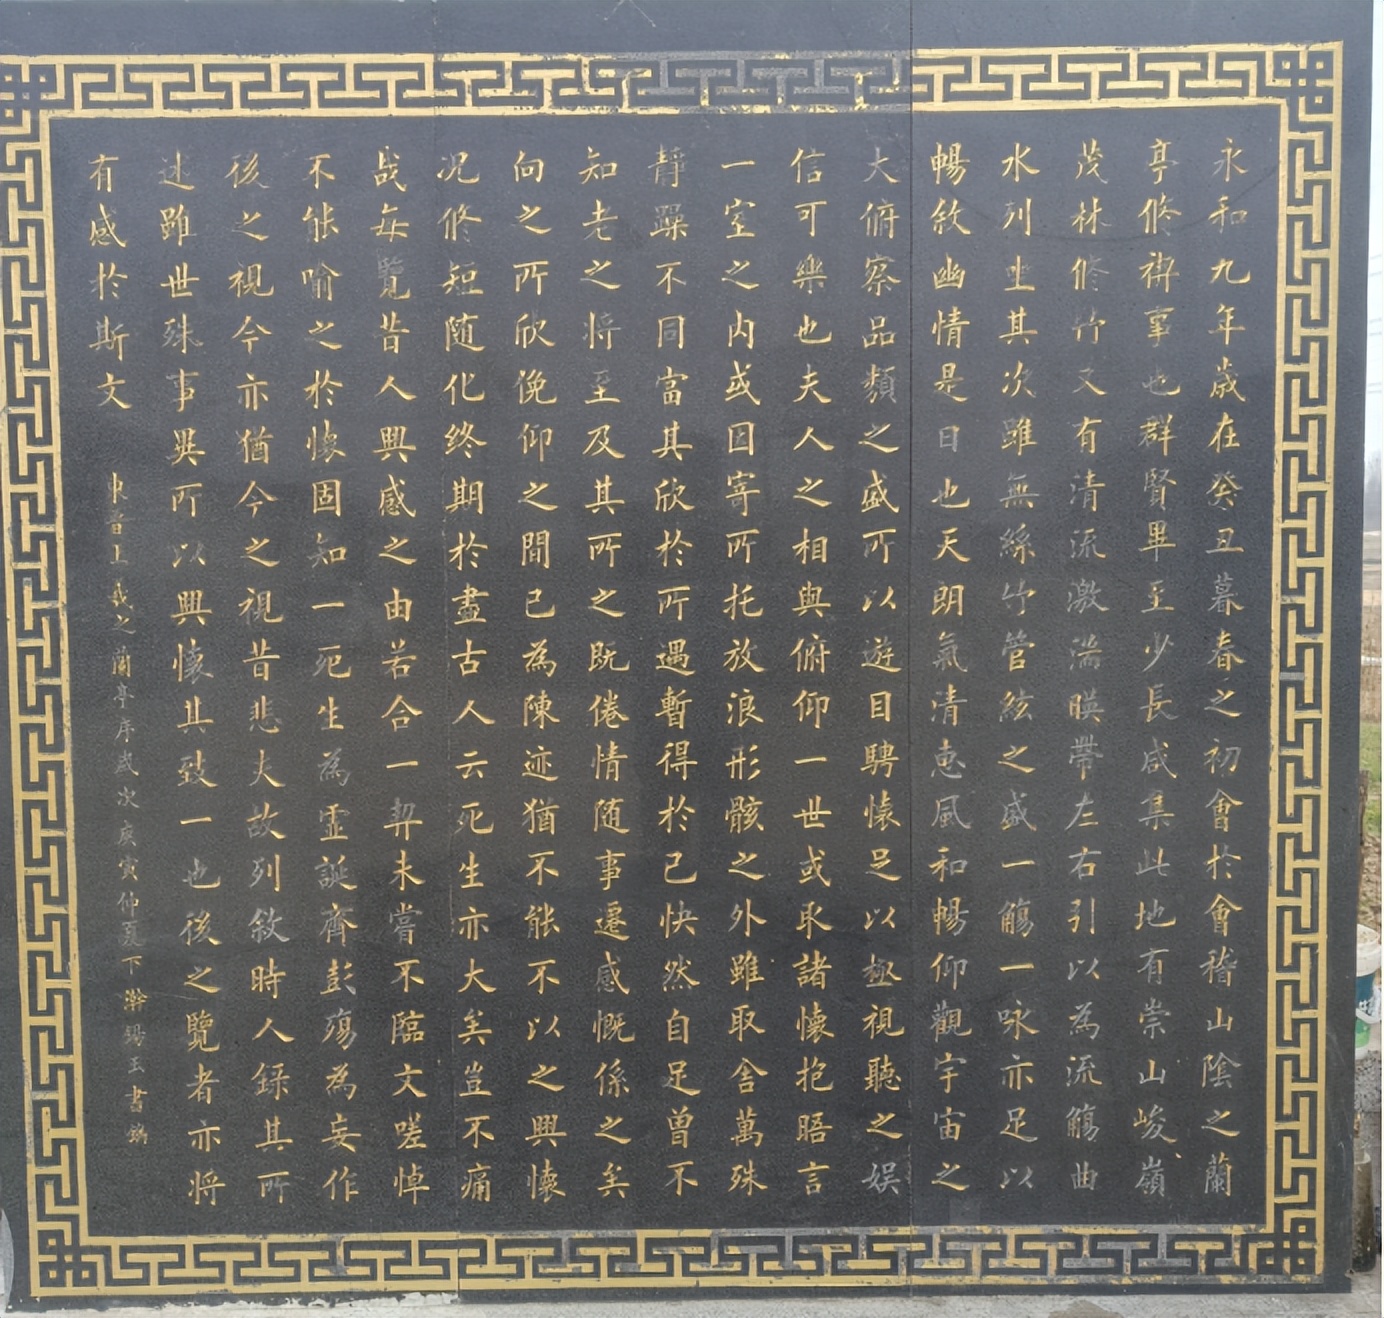 永和九年歲在癸丑暮春之初會於會稽山陰之蘭
亭修禊事也群賢畢至少長咸集此地有崇山峻嶺
茂林修竹又有清流激湍暎帶左右引以為流觴曲
水列坐其次雖無絲竹管絃之盛一觴一咏亦足以
暢敘幽情是日也天朗氣清惠風和暢仰觀宇宙之
大俯察品類之盛所以遊目騁懷足以極視聽之娛
信可樂也夫人之相與俯仰一世或取諸懷抱晤言
一室之内或因寄所托放浪形骸之外雖取舍萬殊
靜躁不同當其欣於所遇暫得於己快然自足曾不
知老之將至及其所之既倦情随事遷感慨係之矣
向之所欣俛仰之間已為陳迹猶不能不以之興懷
况修短随化終期於盡古人云死生亦大矣豈不痛
哉每覽昔人興感之由若合一契未嘗不臨文嗟悼
不能喻之於懷固知一死生為虛誕齊彭殤為妄作
後之視今亦猶今之視昔悲夫故列敘時人錄其所
述雖世殊事異所以興懷其致一也後之覽者亦將
有感於斯文
東晉王羲之蘭亭序歲次庚寅仲夏下瀚錫玉書